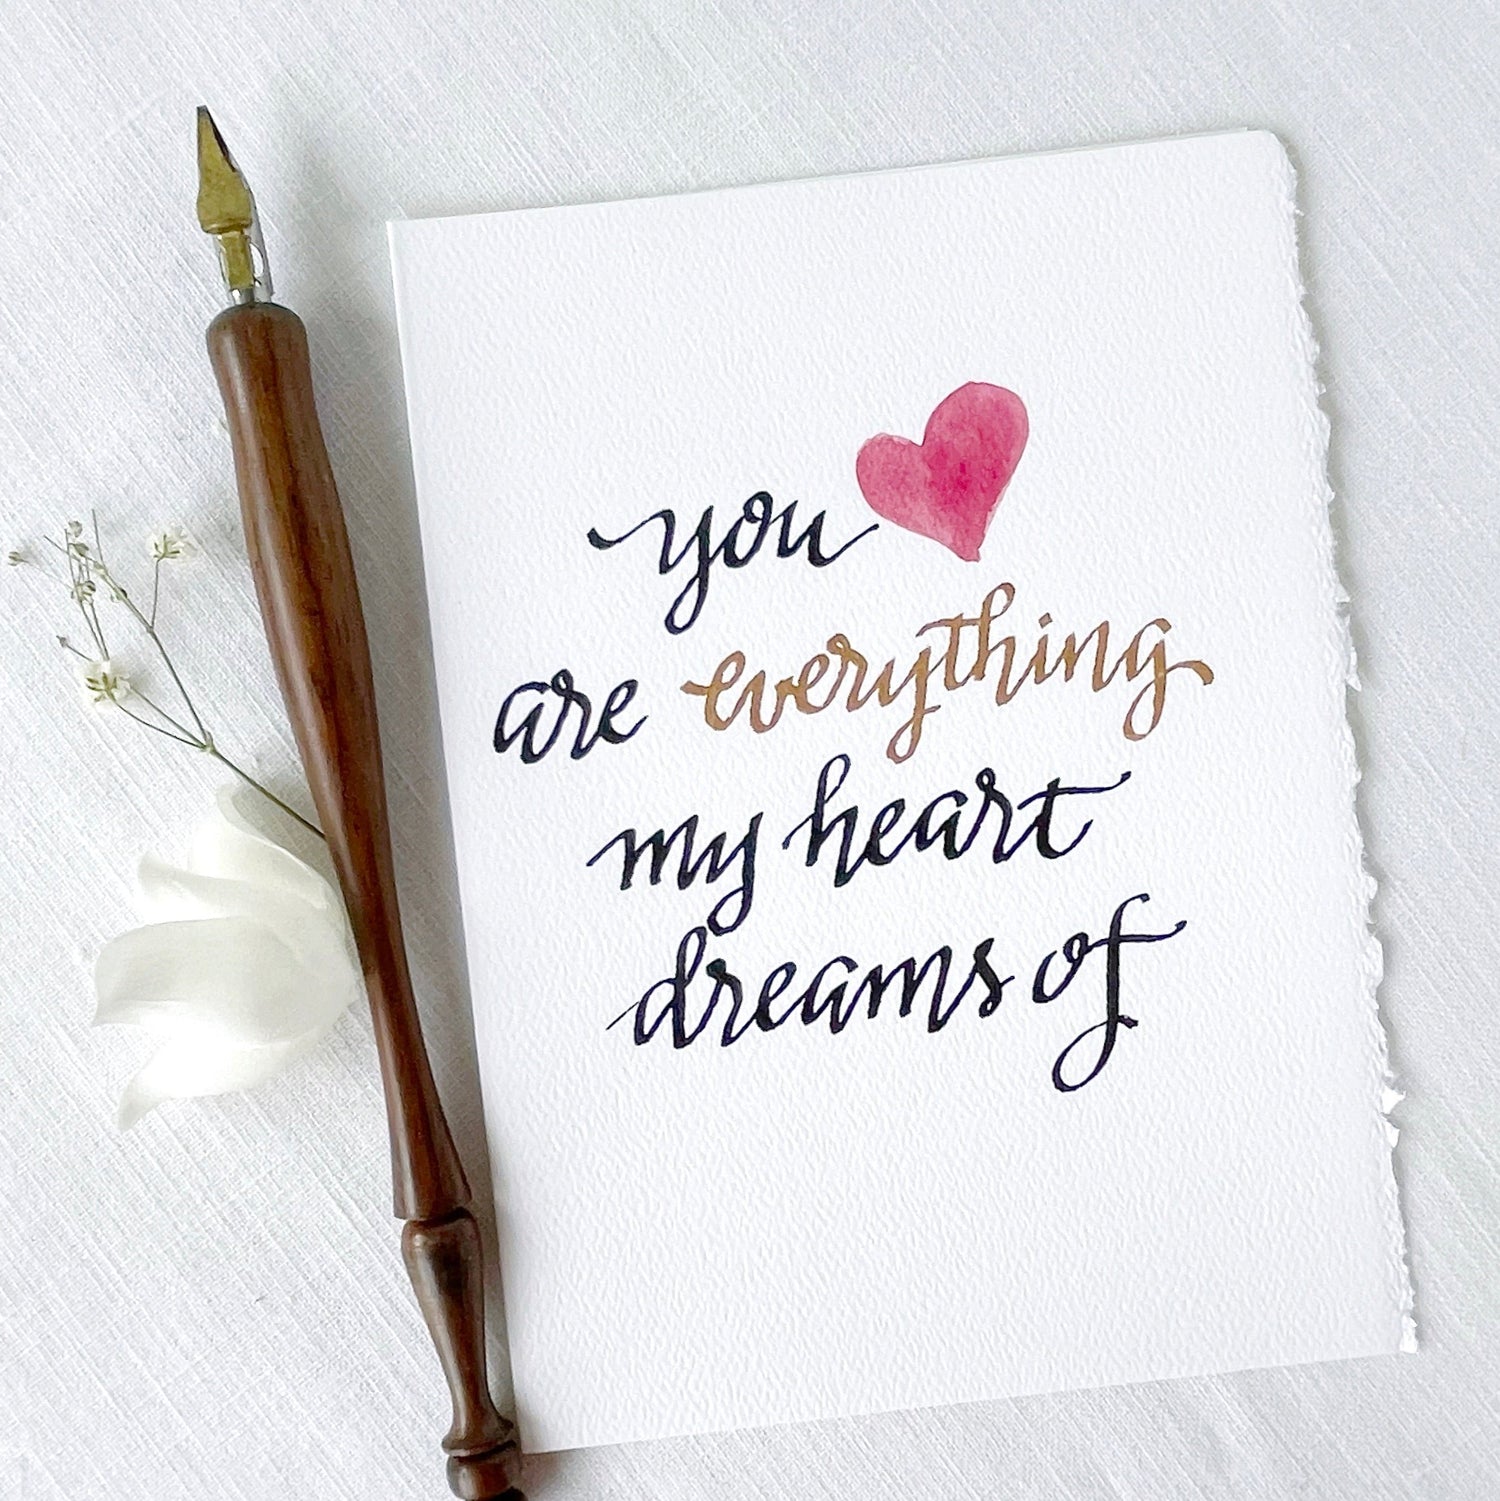 you
are everything
my heart
dreams of